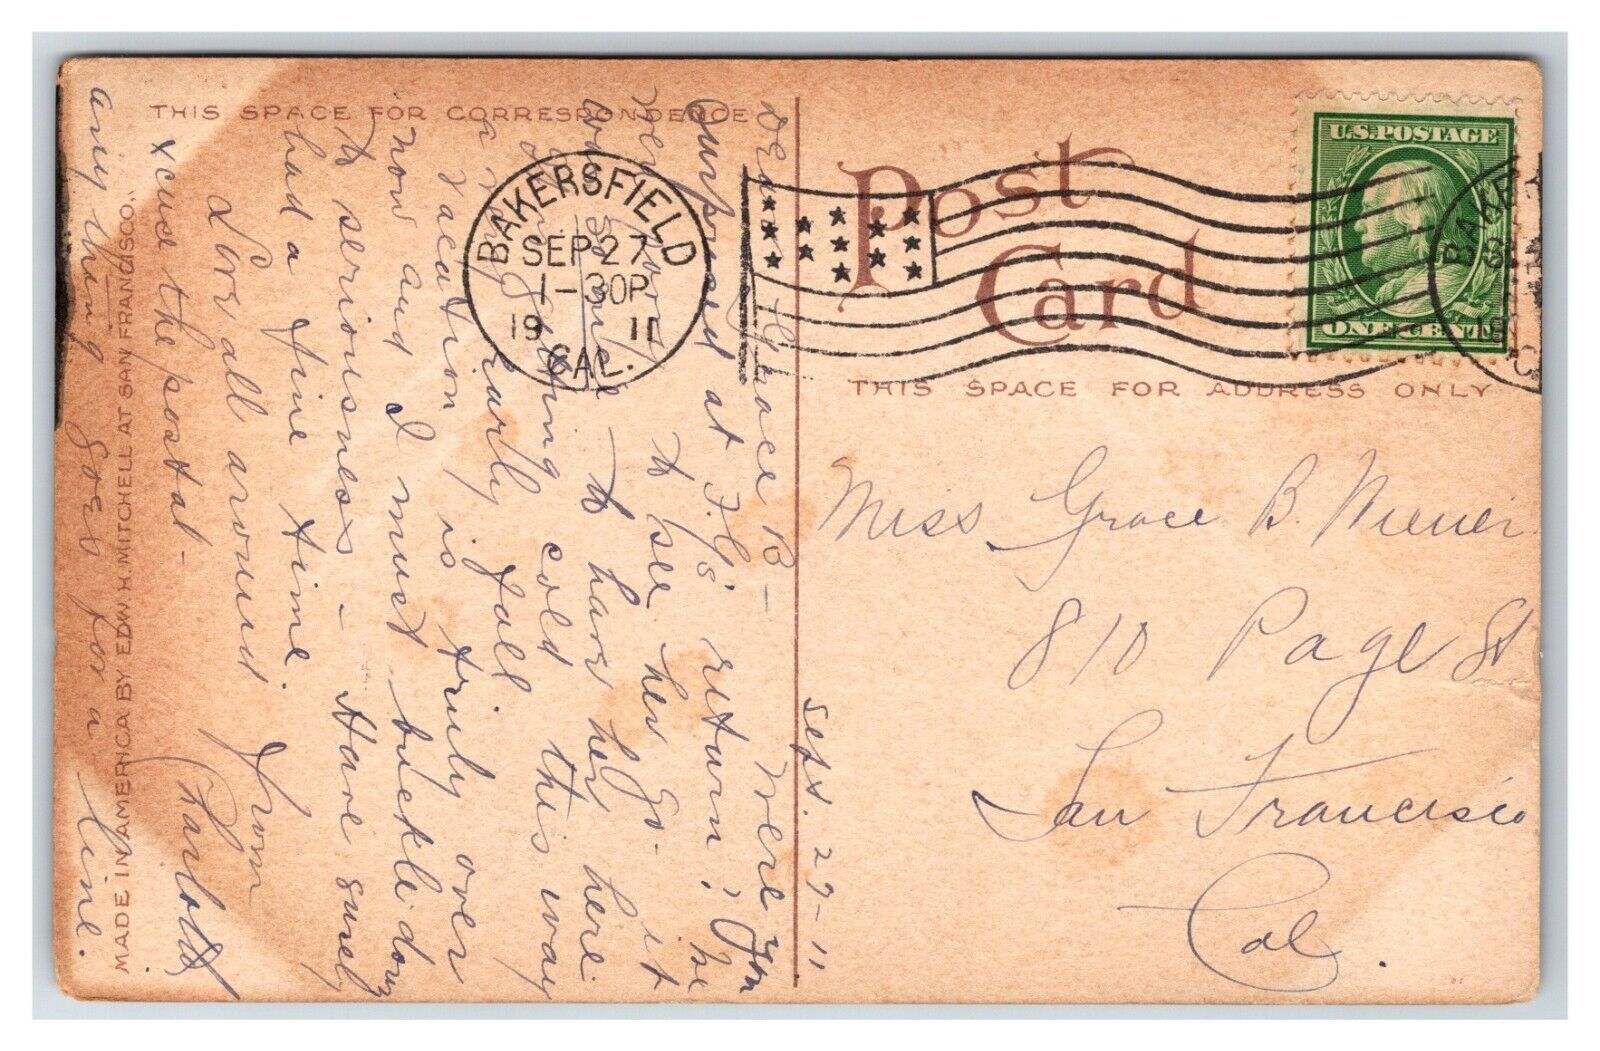 THIS SPACE FOR CORRESPONDENCE
Post
Card
THIS SPACE FOR ADDRESS ONLY
U.S. POSTAGE
ONE CENT
BAKERSFIELD
SEP 27
1-30P
19 11
CAL.
Miss Grace B.
810 Page St
San Francisco
Cal.
Sept. 27-11.
Dear Grace B- Were you
surprised at return? We
to see her go- it
to have her here.
cold this way
early fall
Vacation is truly over
now and I must buckle down
to seriousness- Have surely
had a fine time.
Love all around from
xcuse the postal- Charlotte
any thing goes for a line.
MADE IN AMERICA BY EDW. H. MITCHELL AT SAN FRANCISCO.